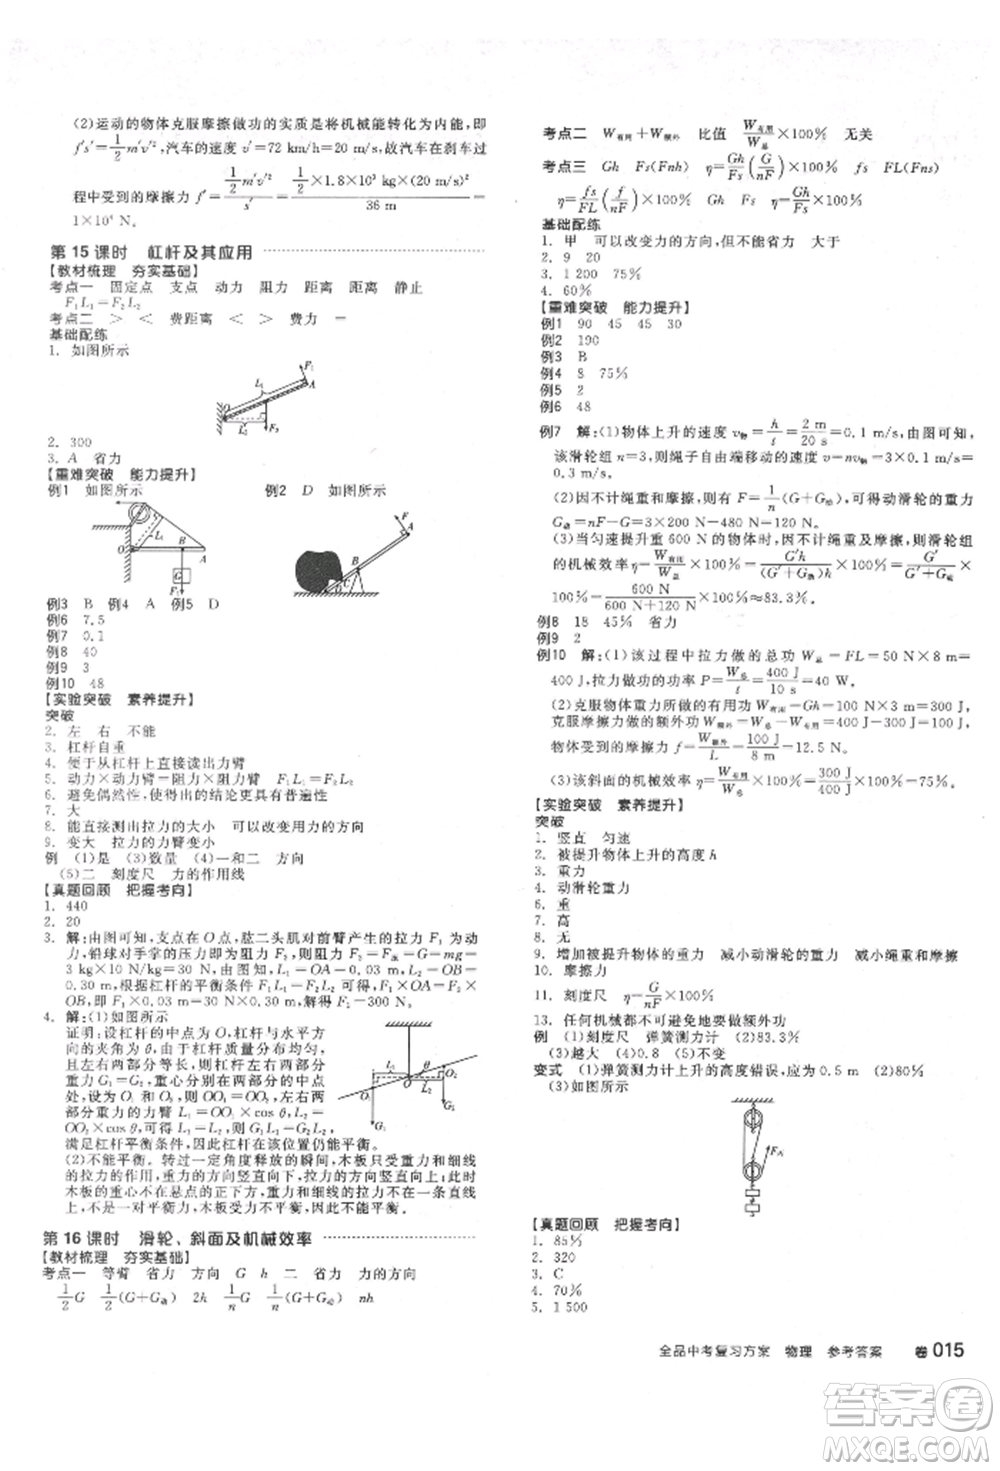 (2)运动的物体克服摩擦做功的实质是将机械能转化为内能,即
f′s′=1/2 m′v′²,汽车的速度 v′=72 km/h=20 m/s,故汽车在刹车过
程中受到的摩擦力 f′=(1/2 m′v′²)/s′=(1/2×1.8×10³ kg×(20 m/s)²)/(36 m)=
1×10⁴ N。
第 15 课时 杠杆及其应用
【教材梳理 夯实基础】
考点一 固定点 支点 动力 阻力 距离 距离 静止
F₁L₁=F₂L₂
考点二 > < 费距离 < > 费力 =
基础配练
1. 如图所示
F₁ A L₁ O L₂ F₂
2. 300
3. A 省力
【重难突破 能力提升】
例1 如图所示 例2 D 如图所示
L₁ O B A G F₂
F A B O C
例3 B 例4 A 例5 D
例6 7.5
例7 0.1
例8 40
例9 3
例10 48
【实验突破 素养提升】
突破
2. 左 右 不能
3. 杠杆自重
4. 便于从杠杆上直接读出力臂
5. 动力×动力臂=阻力×阻力臂 F₁L₁=F₂L₂
6. 避免偶然性,使得出的结论更具有普遍性
7. 大
8. 能直接测出拉力的大小 可以改变用力的方向
9. 变大 拉力的力臂变小
例 (1)是 (3)数量 (4)一和二 方向
(5)二 刻度尺 力的作用线
【真题回顾 把握考向】
1. 440
2. 20
3. 解:由图可知,支点在 O 点,肱二头肌对前臂产生的拉力 F₁ 为动
力,铅球对手的压力为阻力,则阻力 F₂=F压=G=mg=
3 kg×10 N/kg=30 N,由图知,L₁=OA=0.03 m,L₂=OB=
0.30 m,根据杠杆的平衡条件 F₁L₁=F₂L₂ 可得,F₁×OA=F₂×
OB,F₁×0.03 m=30 N×0.30 m,解得 F₁=300 N。
4. 解:(1)如图所示
证明:设杠杆的中点为 O,杠杆与水平方向
的夹角为 θ,由于杠杆质量分布均匀,
所以左、右两部分的重力相等,即 G₁=
G₂,重心分别在两部分的中点处,
设为 O₁ 和 O₂,则 OO₁=OO₂,左右两
部分重力的力臂 L₁=OO₁×cos θ,L₂=
OO₂×cos θ,所以 L₁=L₂,G₁L₁=G₂L₂,
满足杠杆平衡条件,杠杆在该位置仍能平衡。
O₁ O θ O₂ G₂ G₁
(2)不能平衡。转过一定角度释放的瞬间,木板只受到重力和细线
的拉力的作用,重力的方向竖直向下,拉力的方向竖直向上,此时
木板的重心不在悬点的正下方,重力和细线的拉力不在一条直线
上,不是一对平衡力,木板受力不平衡,因此木板不能平衡。
第 16 课时 滑轮、斜面及机械效率
【教材梳理 夯实基础】
考点一 等臂 省力 方向 G h 二 省力 力的方向
1/2 G 1/2 (G+G动) 2h 1/n G 1/n (G+G动) nh
考点二 W有用+W额外 比值 W有用/W总×100% 无关
考点三 Gh Fs(Fnh) η=Gh/Fs(G/nF)×100% fs FL(Fns)
η=fs/FL(f/nF)×100% Gh Fs η=Gh/Fs×100%
基础配练
1. 甲 可以改变力的方向,但不能省力 大于
2. 9 20
3. 1 200 75%
4. 60%
【重难突破 能力提升】
例1 90 45 45 30
例2 190
例3 B
例4 8 75%
例5 2
例6 48
例7 解:(1)物体上升的速度 v物=h/t=2 m/20 s=0.1 m/s,由图可知,
该滑轮组 n=3,则绳子自由端移动的速度 v=nv物=3×0.1 m/s=
0.3 m/s。
(2)因不计绳重和摩擦,则有 F=1/n(G+G动),可得动滑轮的重力
G动=nF-G=3×200 N-480 N=120 N。
(3)当匀速提升重 600 N 的物体时,因不计绳重及摩擦,滑轮组
的机械效率 η=W有用/W总×100%=G′h/((G′+G动)h)×100%=G′/(G′+G动)
×100%=600 N/(600 N+120 N)×100%≈83.3%。
例8 18 45% 省力
例9 2
例10 解:(1)该过程中拉力做的总功 W总=FL=50 N×8 m=
400 J,拉力做功的功率 P=W总/t=400 J/10 s=40 W。
(2)克服物体重力所做的有用功 W有用=Gh=100 N×3 m=300 J,
克服摩擦力做的额外功 W额外=W总-W有用=400 J-300 J=100 J,
物体受到的摩擦力 f=W额外/L=100 J/8 m=12.5 N。
(3)该斜面的机械效率 η=W有用/W总×100%=300 J/400 J×100%=75%。
【实验突破 素养提升】
突破
1. 竖直 匀速
2. 被提升物体上升的高度 h
3. 重力
4. 动滑轮重力
6. 重
7. 高
8. 无
9. 增加被提升物体的重力 减小动滑轮的重力 减小绳重和摩擦
10. 摩擦力
11. 刻度尺 η=G/nF×100%
13. 任何机械都不可避免地要做额外功
例 (1)刻度尺 弹簧测力计 (2)83.3%
(3)越大 (4)0.8 (5)不变
变式 (1)弹簧测力计上升的高度错误,应为 0.5 m (2)80%
(3)如图所示
F A
【真题回顾 把握考向】
1. 85%
2. 320
3. C
4. 70%
5. 1 500
全品中考复习方案 物理 参考答案 卷 015
答案圈
MXQE.COM